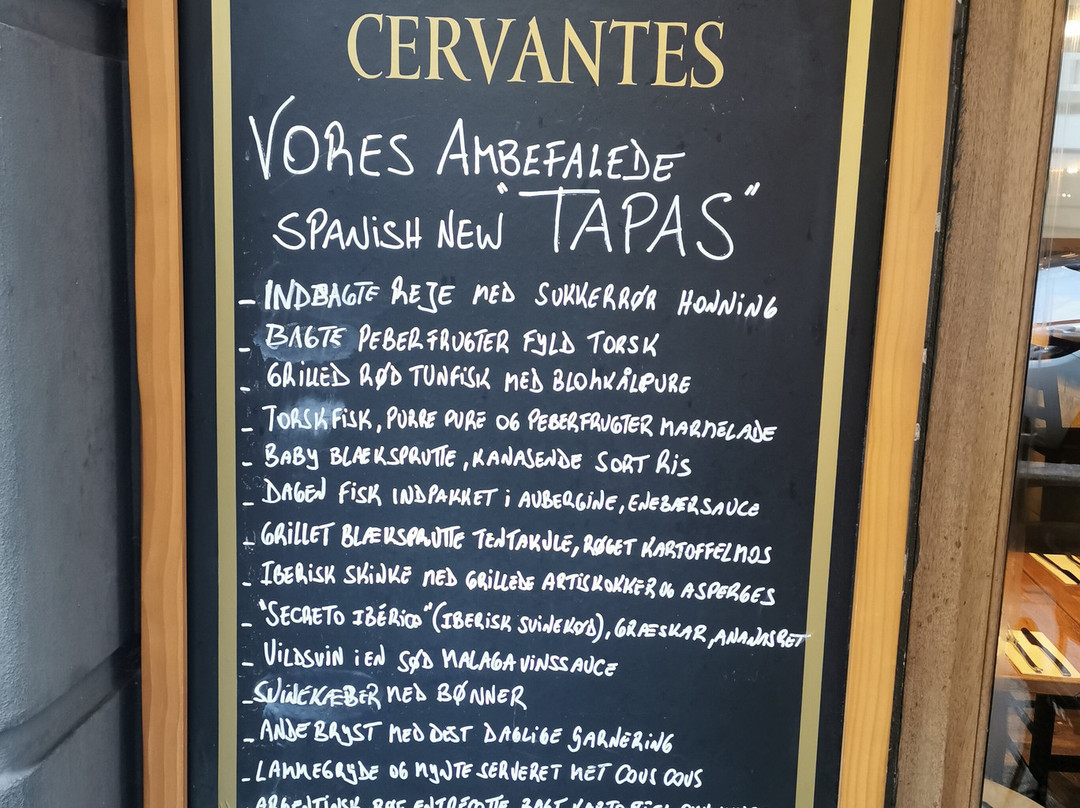 CERVANTES
VORES AMBEFALEDE
SPANISH NEW "TAPAS"
- INDBAGTE REJE MED SUKKERRØR HONNING
- BAGTE PEBERFRUGTER FYLD TORSK
- GRILLED RØD TUNFISK MED BLOMKÅLPURE
- TORSKFISK, PURRE PURE OG PEBERFRUGTER MARMELADE
- BABY BLÆKSPRUTTE, KANASENDE SORT RIS
- DAGEN FISK INDPAKKET i AUBERGINE, ENEBÆRSAUCE
- GRILLET BLÆKSPRUTTE TENTAKULE, RØGET KARTOFFELMOS
- IBERISK SKINKE MED GRILLEDE ARTISKOKKER OG ASPERGES
- "SECRETO IBÉRICO" (IBERISK SVINEKØD), GRÆSKAR, ANANASRET
- VILDSVIN i EN SØD MALAGA VINSSAUCE
- SVINEKÆBER MED BØNNER
- ANDEBRYST MED DEST DAGLIGE GARNERING
- LAMMEGRYDE OG MYNTE SERVERET MET COUS COUS
ARGENTINSK